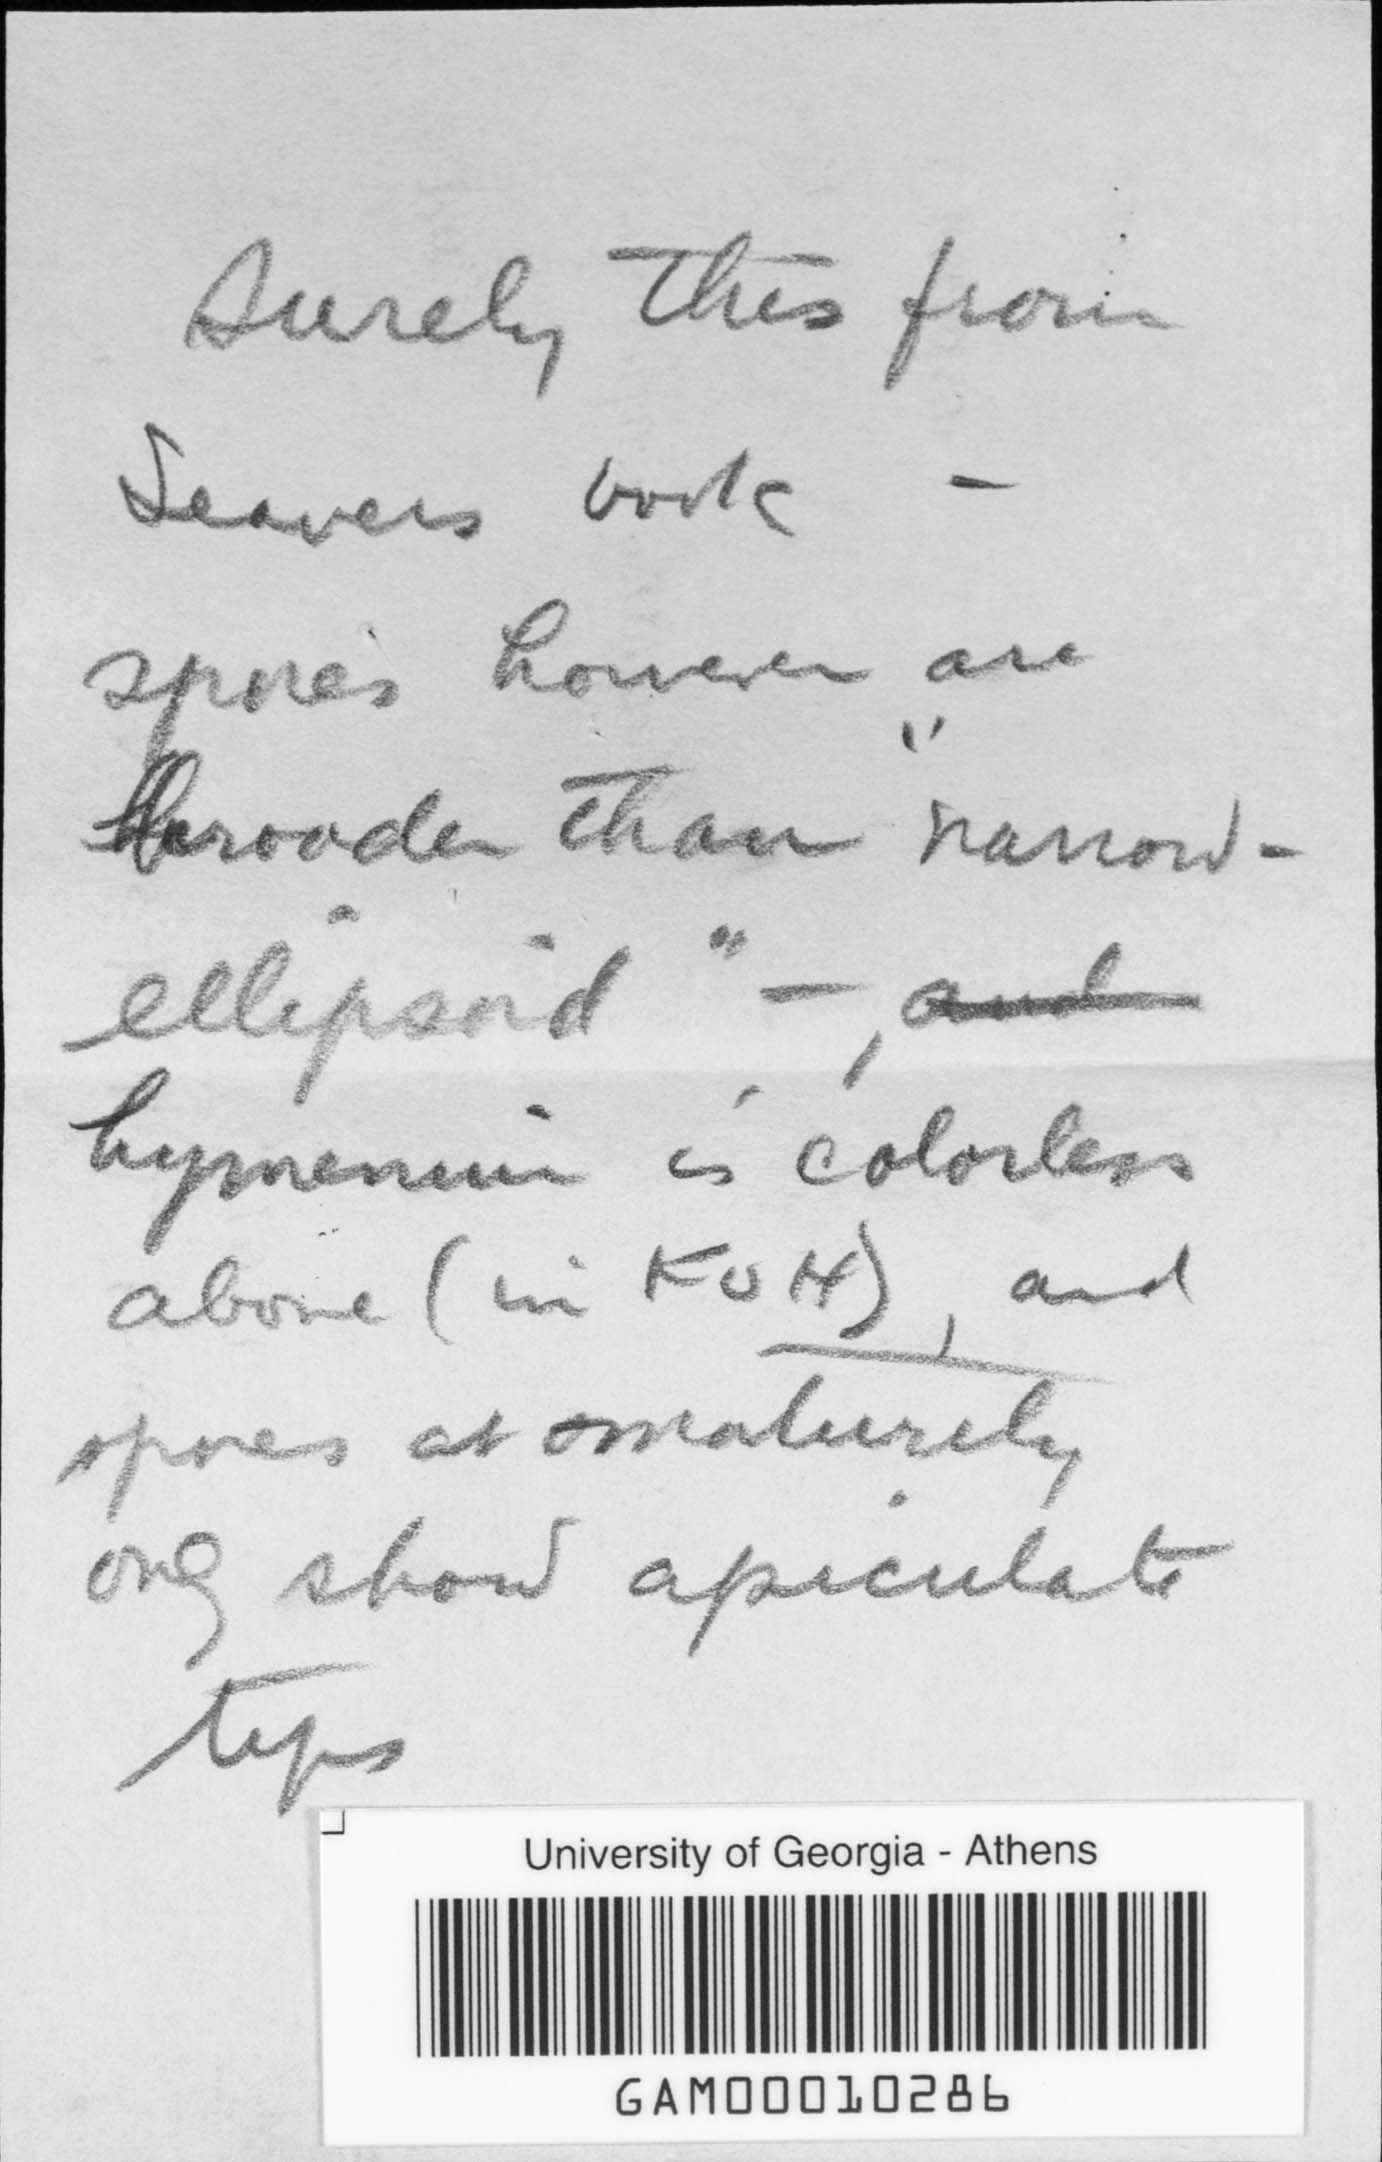 Surely this from
Seavers book -
spores however are
broader than "narrow-
ellipsoid" -, and
hymenium is colorless
above (in KOH), and
spores at maturity
only show apiculate
tips
University of Georgia - Athens
GAM00010286